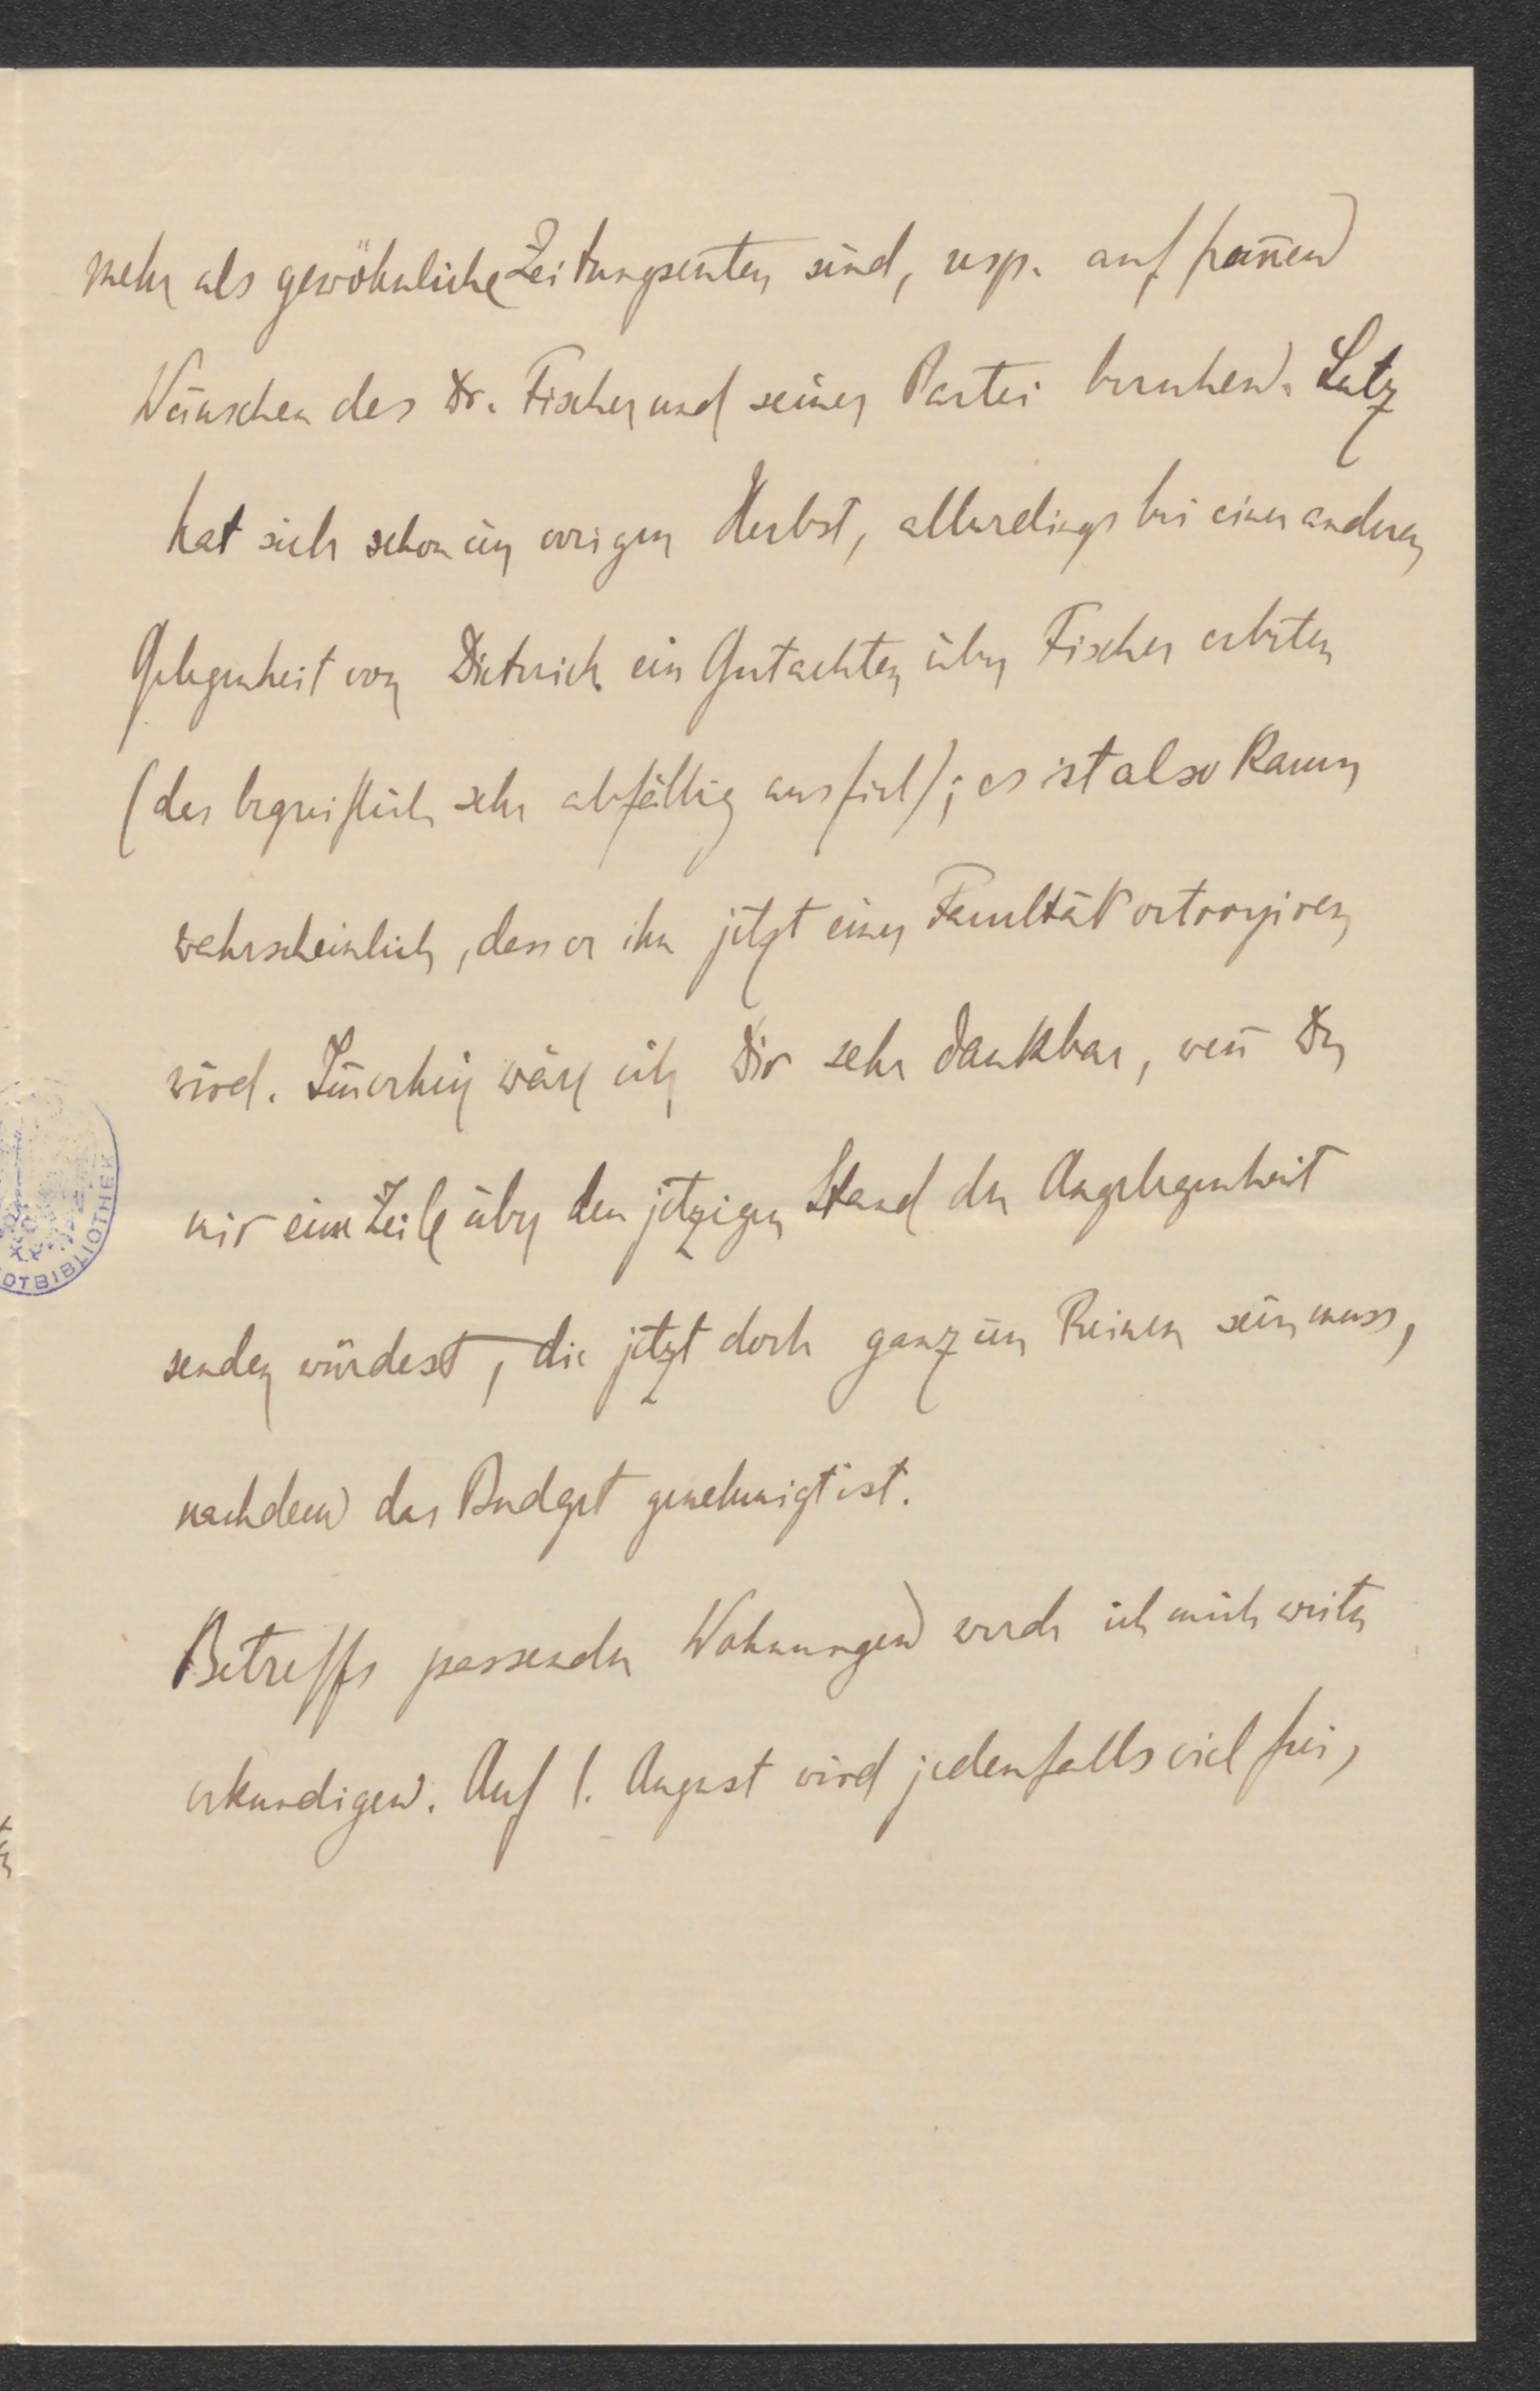 mehr als gewöhnliche Zeitungsenten sind, resp. auf from̅en
Wünschen des Dr. Fischer und seiner Partei beruhen. Lutz
hat sich schon im vorigen Herbst, allerdings bei einer anderen
Gelegenheit von Dietrich ein Gutachten über Fischer erbeten
(das begreiflich sehr abfällig ausfiel); es ist also kaum
wahrscheinlich, dass er ihn jetzt einer Facultät octroyiren
wird. Im̅erhin wäre ich Dir sehr dankbar, wen̅ Du
mir eine Zeile über den jetzigen Stand der Angelegenheit
senden würdest, die jetzt doch ganz im Reinen sein muss,
nachdem das Budget genehmigt ist.
Betreffs passender Wohnungen werde ich mich weiter
erkundigen. Auf 1. August wird jedenfalls viel frei,
OTBIBLIOTHEK